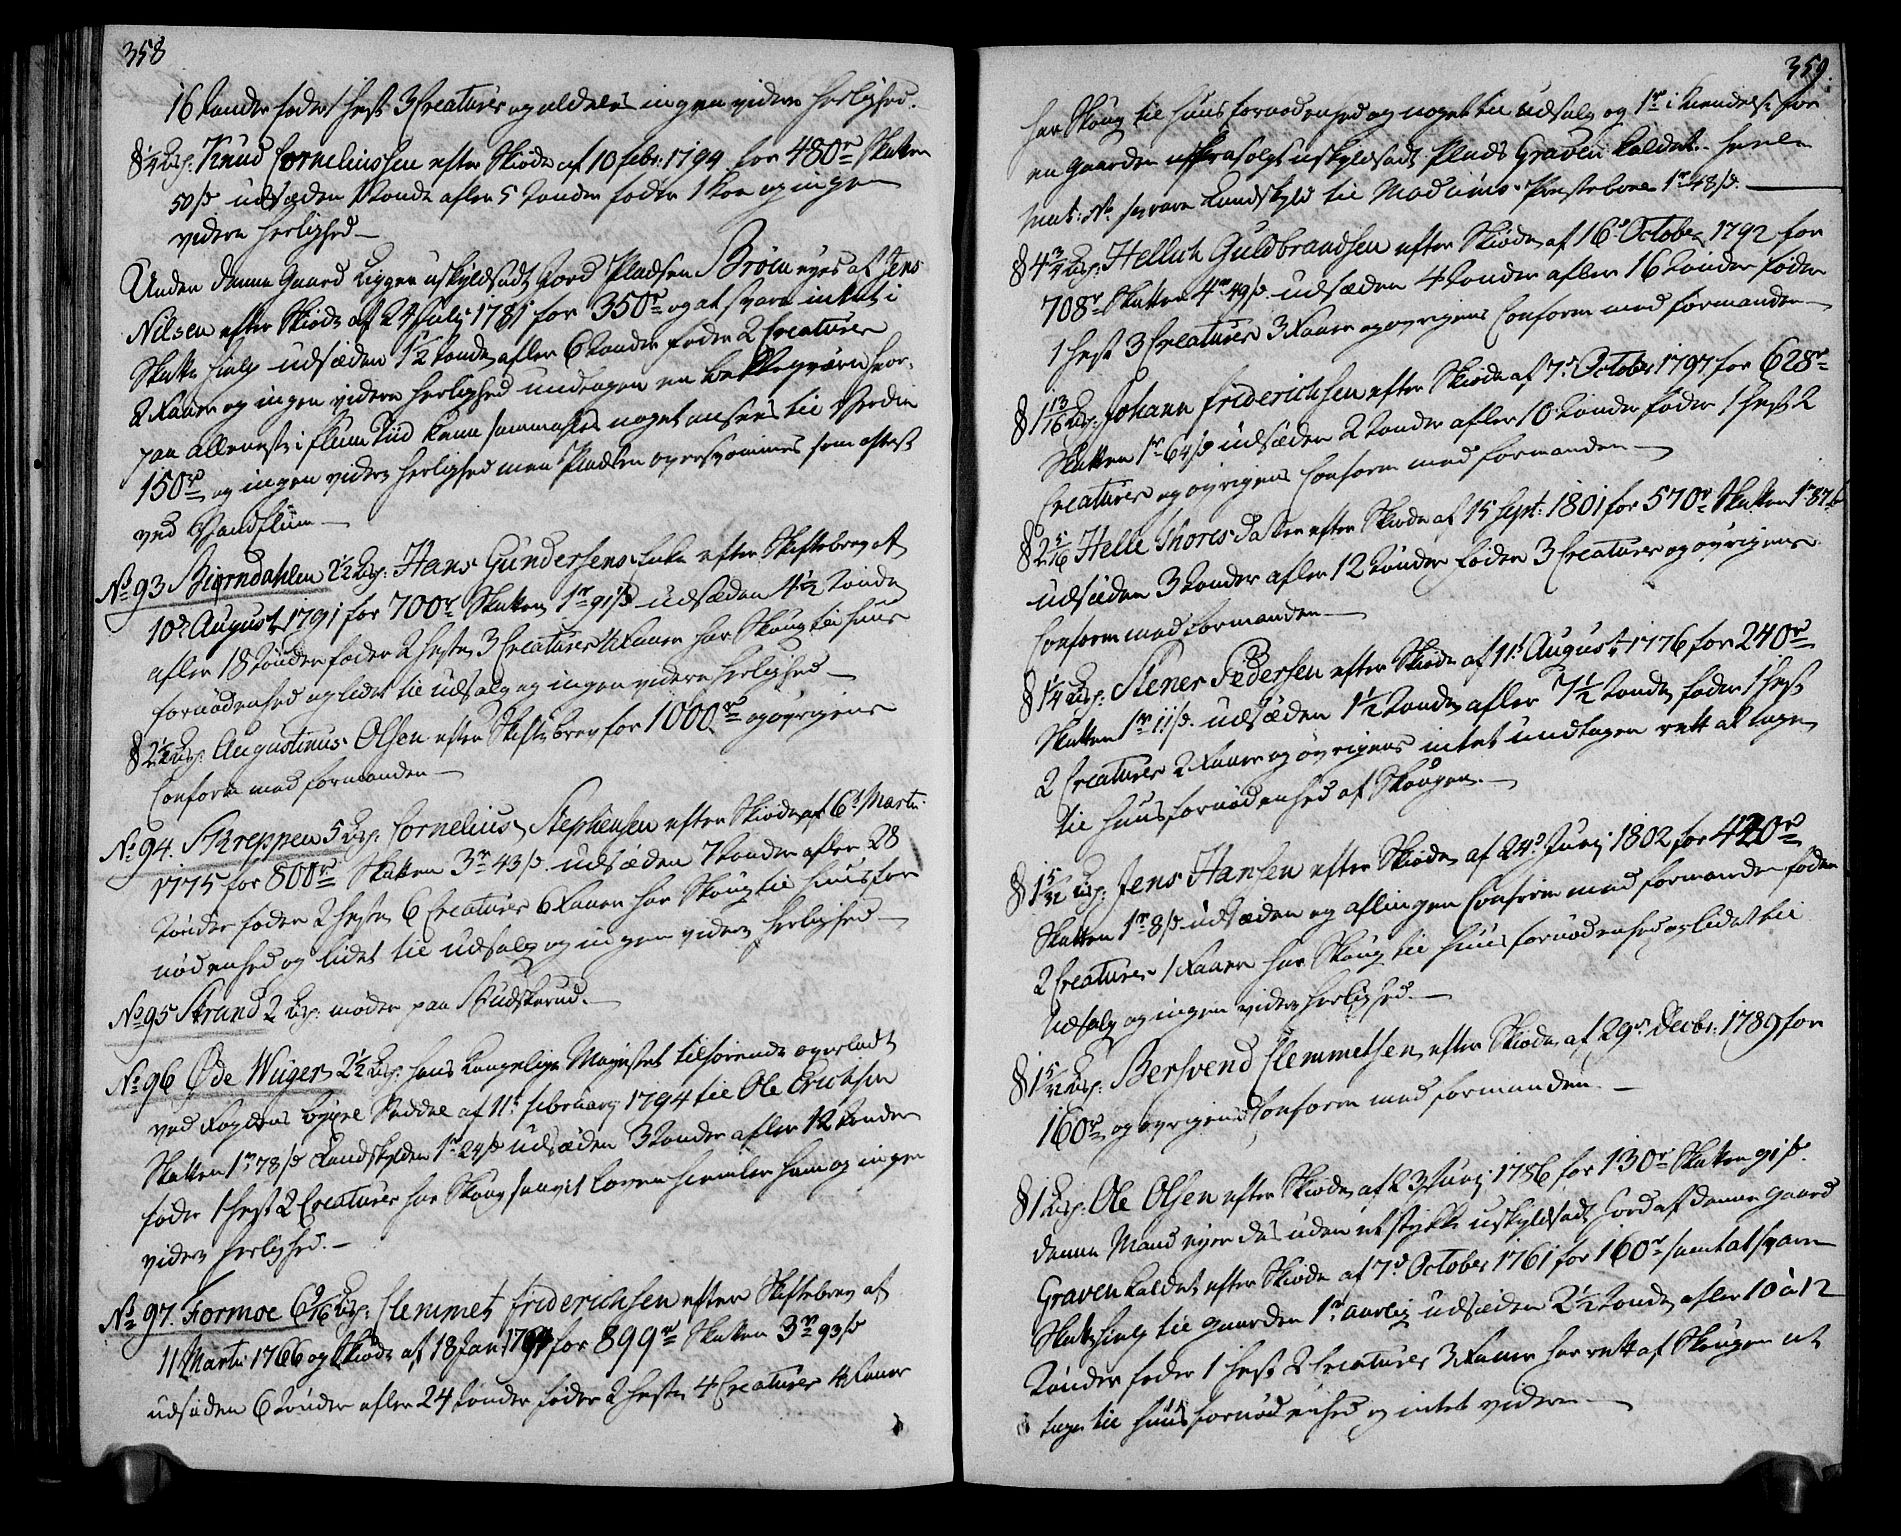 358
16 tønder føder 1 hest 3 Creaturer og aldeles ingen videre herlighed.
§ 1/4 Lisp: Knud Corneliussen efter Skiøde af 10 febr: 1794 for 480r Skatten
50 s udsæden 1 tønde afler 5 tønder føder 1 koe og ingen
videre herlighed —
Under denne Gaard ligger uskyldsadt Jord Pladsen Brøin eyes af Jens
Nilsen efter Skiøde af 24 Julj 1781 for 350r og at svare intet i
Skatte hielp udsæden 1 1/2 tønde afler 6 tønder føder 2 Creaturer
2 Faaer og ingen videre herlighed undtagen en bekkeqværn hvor-
paa alleneste i flom Tiid kand sammales noget ansees til Værdie
150r og ingen videre herlighed men Pladsen oversvømmes som oftest
ved Vandflom —
No 93 Biørndahlen 2 1/2 Lisp: Hans Gundersens Enke efter Skiftebrev af
10de August 1791 for 700r Skatten 1r 91 s udsæden 4 1/2 tønde
afler 18 tønder føder 2 heste 3 Creaturer 4 Faaer har Skoug til huus
fornødenhed og lidet til udsalg og ingen videre herlighed —
§ 2 1/2 Lisp: Augustinus Olsen efter Skiftebrev for 1000r og øvrigens
Conform med formanden —
No 94. Skreppen 5 Lisp: Cornelius Stephensen efter Skiøde af 6t Martii
1775 for 800r Skatten 3r 43 s udsæden 7 tønder afler 28
tønder føder 2 heste 6 Creaturer 6 Faaer har Skoug til huusfor
nødenhed og lidet til udsalg og ingen videre herlighed —
No 95 Strand 2 Lisp: møder paa Buskerud. —
No 96 Øde Wiiger 2 1/2 Lisp: hans Kongelige Majestet tilhørende overladt
ved Fogdens bøxel Seddel af 11t februarj 1794 til Ole Erichsen
Skatten 1r 78 s Landskylden 1r 24 s udsæden 3 tønder afler 12 tønder
føder 1 hest 2 Creaturer har Skoug saavit Loven hiemler ham og ingen
videre herlighed. —
No 97. Formoe 6 9/16 Lisp: Clemmet Friderichsen efter Skiftebrev af
11 Martii 1766 og Skiøde af 18 Jan: 1794 for 899r Skatten 3r 93 s
udsæden 6 tønder afler 24 tønder føder 2 heste 4 Creaturer 4 Faaer
359.
har Skoug til huus fornødenhed og noget til udsalg og 1r i kiendelse for
en gaarden usfrasolgt uskyldsadt Plads Graven kaldet. heele
Mat: No svare Landskyld til Modums Præstebole 1r 48 s. —
§ 4 3/4 Lisp: Hellich Guldbrandsen efter Skiøde af 16d October 1792 for
708r Skatten 4r 49 s udsæden 4 tønder afler 16 tønder føder
1 hest 3 Creaturer 3 Faaer og øvrigens Conform med formanden —
§ 1 13/16 Lisp: Johann Friderichsen efter Skiøde af 7d October 1797 for 628r
Skatten 1r 64 s udsæden 2 tønder afler 10 tønder føder 1 hest 2
Creaturer og øvrigens Conform med formanden —
§ 2 5/16 Helle Thores Datter efter Skiøde af 15 Sept: 1801 for 570r Skatten 1r 87 s
udsæden 3 tønder afler 12 tønder føder 3 Creaturer og øvrigens
Conform med formanden —
§ 1 1/4 Lisp: Stener Pedersen efter Skiøde af 11t August 1776 for 240r
Skatten 1r 11 s. udsæden 1 1/2 tønde afler 7 1/2 tønde føder 1 hest
2 Creaturer 2 Faaer og øvrigens intet undtagen rett at tage
til huus fornødenhed af Skougen. —
§ 1 5/32 Lisp: Jens Hansen efter Skiøde af 24d Junj 1802 for 420r
Skatten 1r 8 s udsæden og aflingen Conform med formanden føder
2 Creaturer 1 Faaer har Skoug til huus fornødenhed og lidet til
udsalg og ingen videre herlighed. —
§ 1 5/32 Lisp: Bersvend Clemmetsen efter Skiøde af 29d Decbr: 1789 for
160r og øvrigens Conform med formanden —
§ 1 Lisp: Ole Olsen efter Skiøde af 23 Junj 1786 for 130r Skatten 91 s.
denne Mand eyer des uden et stykke uskyldsadt Jord af denne gaard
Graven kaldet efter Skiøde af 7d October 1761 for 160r samt at svare
Skattehielp til gaarden 1r aarlig udsæden 2 1/2 tønde afler 10 à 12
tønder føder 1 hest 2 Creaturer 3 Faaer har rett af Skougen at
tage til huus fornødenhed og intet videre —